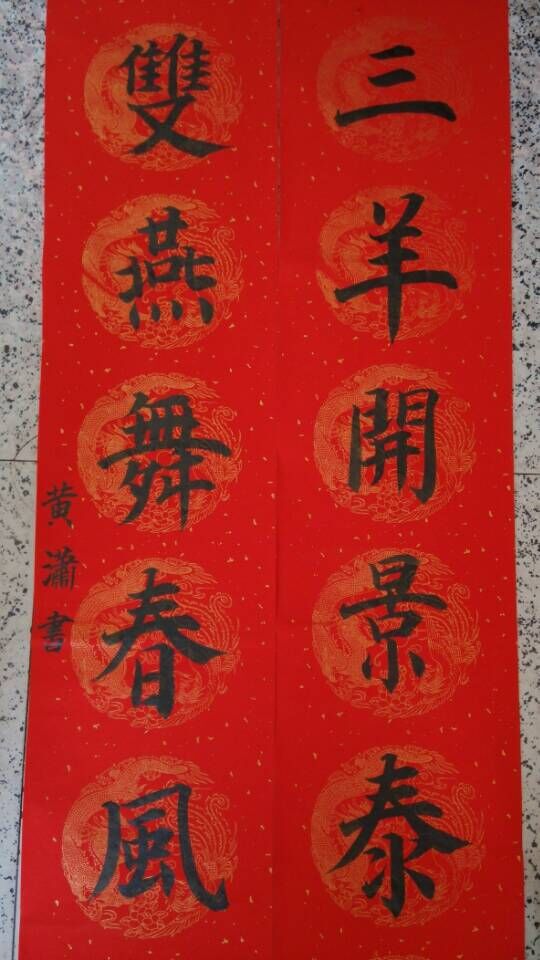 三羊開景泰
雙燕舞春風
黄瀟書